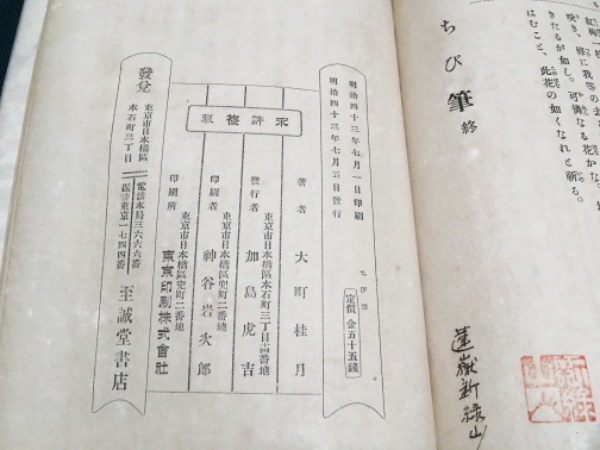 きたるが如し。可憐なる花かな。
はむこと、此花の如くなれと祈る。
ちび筆 終
明治四十三年七月一日印刷
明治四十三年七月五日發行
ちび筆
定價金五十五錢
不許複製
著者 大町桂月
東京市日本橋區本石町三丁目十四番地
發行者 加島虎吉
東京市日本橋區兜町二番地
印刷者 神谷岩次郎
東京市日本橋區兜町二番地
印刷所 東京印刷株式會社
發兌
東京市日本橋區
本石町三丁目
電話本局三六六六番
振替東京一七四四番
至誠堂書店